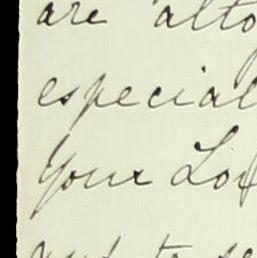 are alto
especial
your Lo